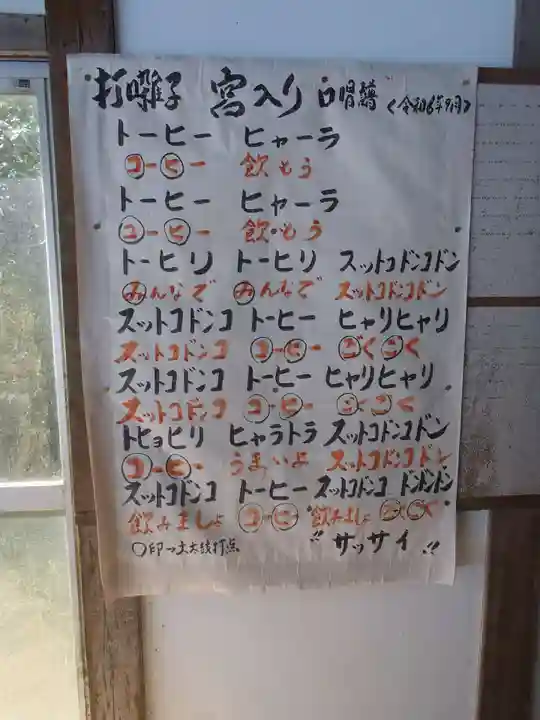 打囃子 宮入り 口唱譜 <令和6年9月>
トーヒー ヒャーラ
コーヒー 飲もう
トーヒー ヒャーラ
コーヒー 飲・もう
トーヒリ トーヒリ スットコドンコドン
みんなで みんなで スットコドンコドン
スットコドンコ トーヒー ヒャリヒャリ
スットコドンコ コーヒー ごくごく
スットコドンコ トーヒー ヒャリヒャリ
スットコドンコ コーヒー ごくごく
トヒョヒリ ヒャラトラ スットコドンコドン
コーヒー うまいよ スットコドンコドン
スットコドンコ トーヒー スットコドンコ ドンドンドン
飲みましょ コーヒー 飲みましょ ごくごく
〇印→大太鼓打点 !! サッサイ !!